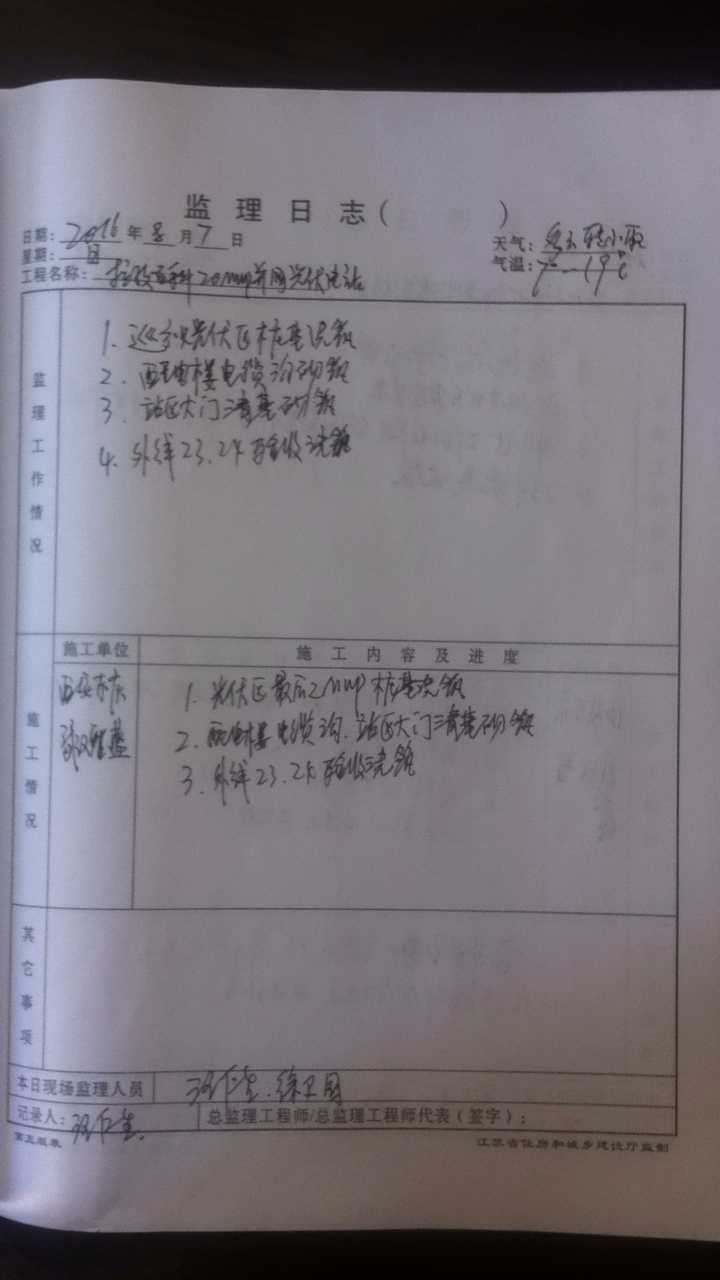 监理日志( )
日期: 2016年8月7日
星期: 日
天气: 多云 转小雨
气温: 7°-19℃
工程名称: 20MWP并网光伏电站
监理工作情况
1. 巡视光伏区桩基浇筑
2. 配电楼电缆沟砌筑
3. 站区大门基砌筑
4. 外线23.24验收浇筑
施工情况
施工单位
施工内容及进度
西安
1. 光伏区最后2MWP桩基浇筑
2. 配电楼电缆沟.站区大门基砌筑
3. 外线23.24验收浇筑
其它事项
本日现场监理人员 徐卫国
记录人:
总监理工程师/总监理工程师代表(签字):
第五版表
江苏省住房和城乡建设厅监制